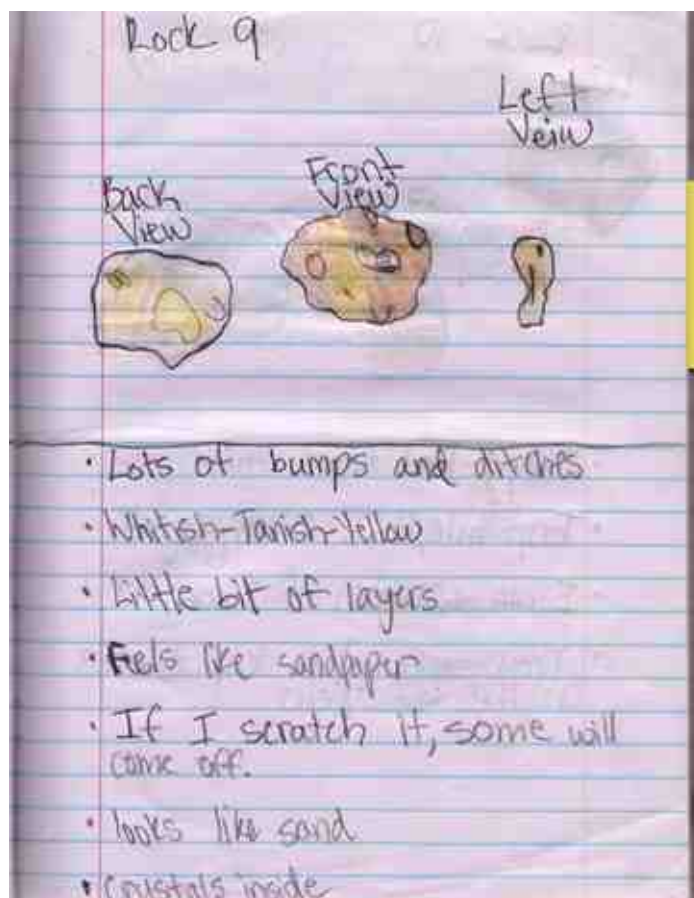 Rock 9
Left
Veiw
Front
View
Back
View
• Lots of bumps and ditches
• Whitish-Tanish-Yellow
• Little bit of layers
• Feels like sandpaper
• If I scratch it, some will
come off.
• looks like sand
• Crystals inside